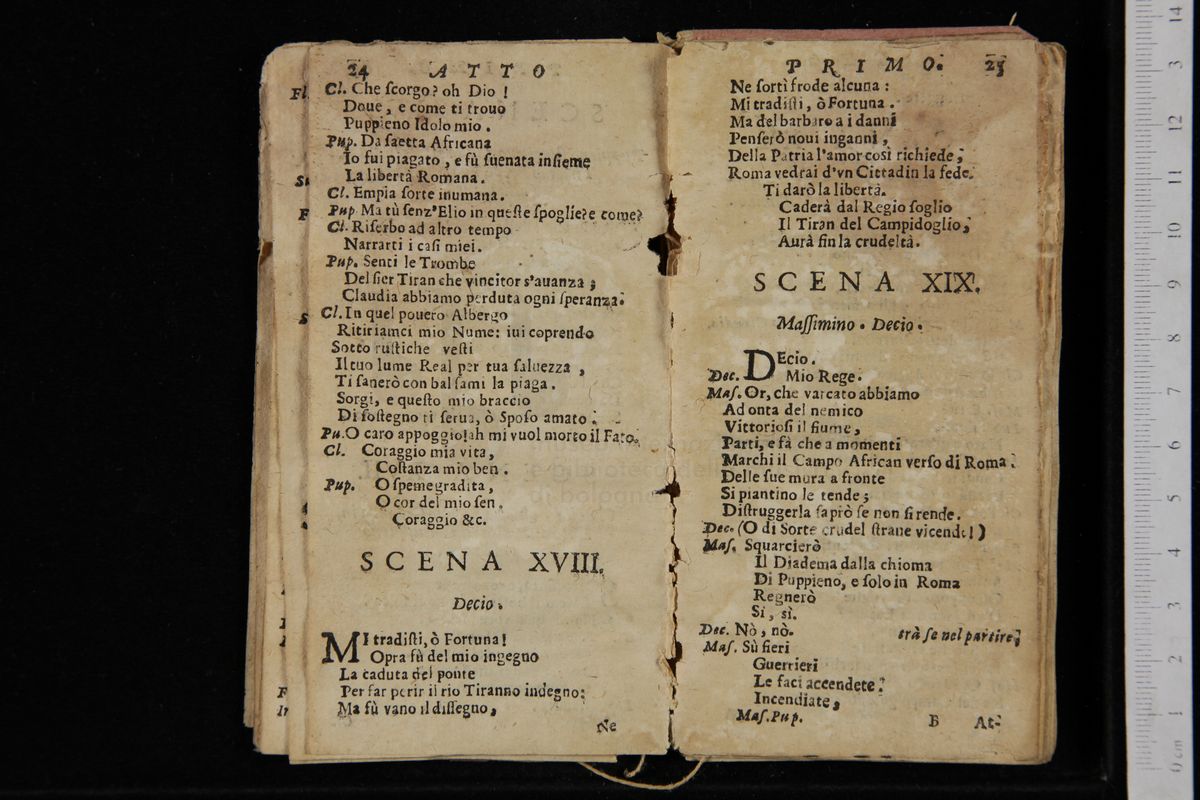 24 ATTO
Cl. Che ſcorgo? oh Dio !
Doue, e come ti trouo
Puppieno Idolo mio.
Pup. Da ſaetta Africana
Io fui piagato, e fù ſuenata inſieme
La libertà Romana.
Cl. Empia ſorte inumana.
Pup Ma tù ſenz'Elio in queſte ſpoglie? e come?
Cl. Riſerbo ad altro tempo
Narrarti i caſi miei.
Pup. Senti le Trombe
Del fier Tiran che vincitor s'auanza ;
Claudia abbiamo perduta ogni ſperanza.
Cl. In quel pouero Albergo
Ritiriamci mio Nume: iui coprendo
Sotto ruſtiche veſti
Il tuo lume Real per tua ſaluezza ,
Ti ſanerò con balſami la piaga.
Sorgi, e queſto mio braccio
Di ſoſtegno ti ſerua, ò Spoſo amato.
Pu. O caro appoggio! ah mi vuol morto il Fato.
Cl. Coraggio mia vita,
Coſtanza mio ben.
Pup. O ſpeme gradita,
O cor del mio ſen.
Coraggio &c.
SCENA XVIII.
Decio.
MI tradiſti, ò Fortuna!
Opra fù del mio ingegno
La caduta del ponte
Per far perir il rio Tiranno indegno:
Ma fù vano il diſſegno,
Ne
PRIMO. 25
Ne ſortì frode alcuna :
Mi tradiſti, ò Fortuna.
Ma del barbaro a i danni
Penſerò noui inganni,
Della Patria l'amor così richiede;
Roma vedrai d'vn Cittadin la fede.
Ti darò la libertà.
Caderà dal Regio ſoglio
Il Tiran del Campidoglio;
Aurà fin la crudeltà.
SCENA XIX.
Maſſimino. Decio.
DEcio.
Dec. Mio Rege.
Maſ. Or, che varcato abbiamo
Ad onta del nemico
Vittorioſi il fiume,
Parti, e fà che a momenti
Marchi il Campo African verſo di Roma.
Delle ſue mura a fronte
Si piantino le tende;
Diſtruggerla ſaprò ſe non ſi rende.
Dec. (O di Sorte crudel ſtrane vicende!)
Maſ. Squarcierò
Il Diadema dalla chioma
Di Puppieno, e ſolo in Roma
Regnerò
Si, sì.
Dec. Nò, nò. trà ſe nel partire.
Maſ. Sù fieri
Guerrieri
Le faci accendete.
Incendiate,
Maſ. Pup. B At-